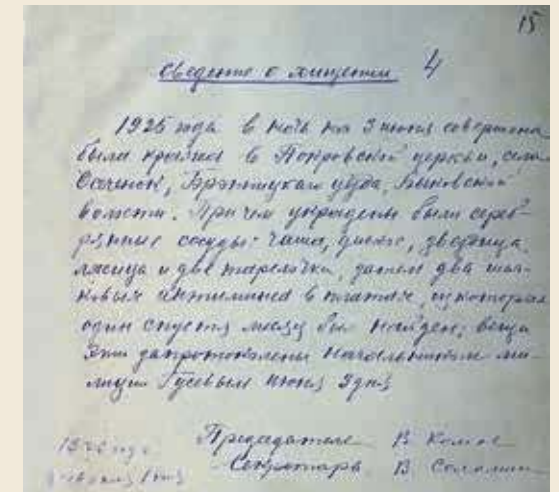 15
Сведение о хищении 4
1925 года в ночь на 3 июня совершена
была кража в Покровской церкви, села
уезда, Быковской
волости. Причем украдены были сереб-
рянные сосуды: чаша, дискос, звездица,
лжица и две тарелочки, затем два шел-
ковых антиминса в платах, из которых
один спустя месяц был найден; вещи
эти запротоколены начальником ми-
лиции Гусевым июня 9 дня
Председатель В
Секретарь В Соломин